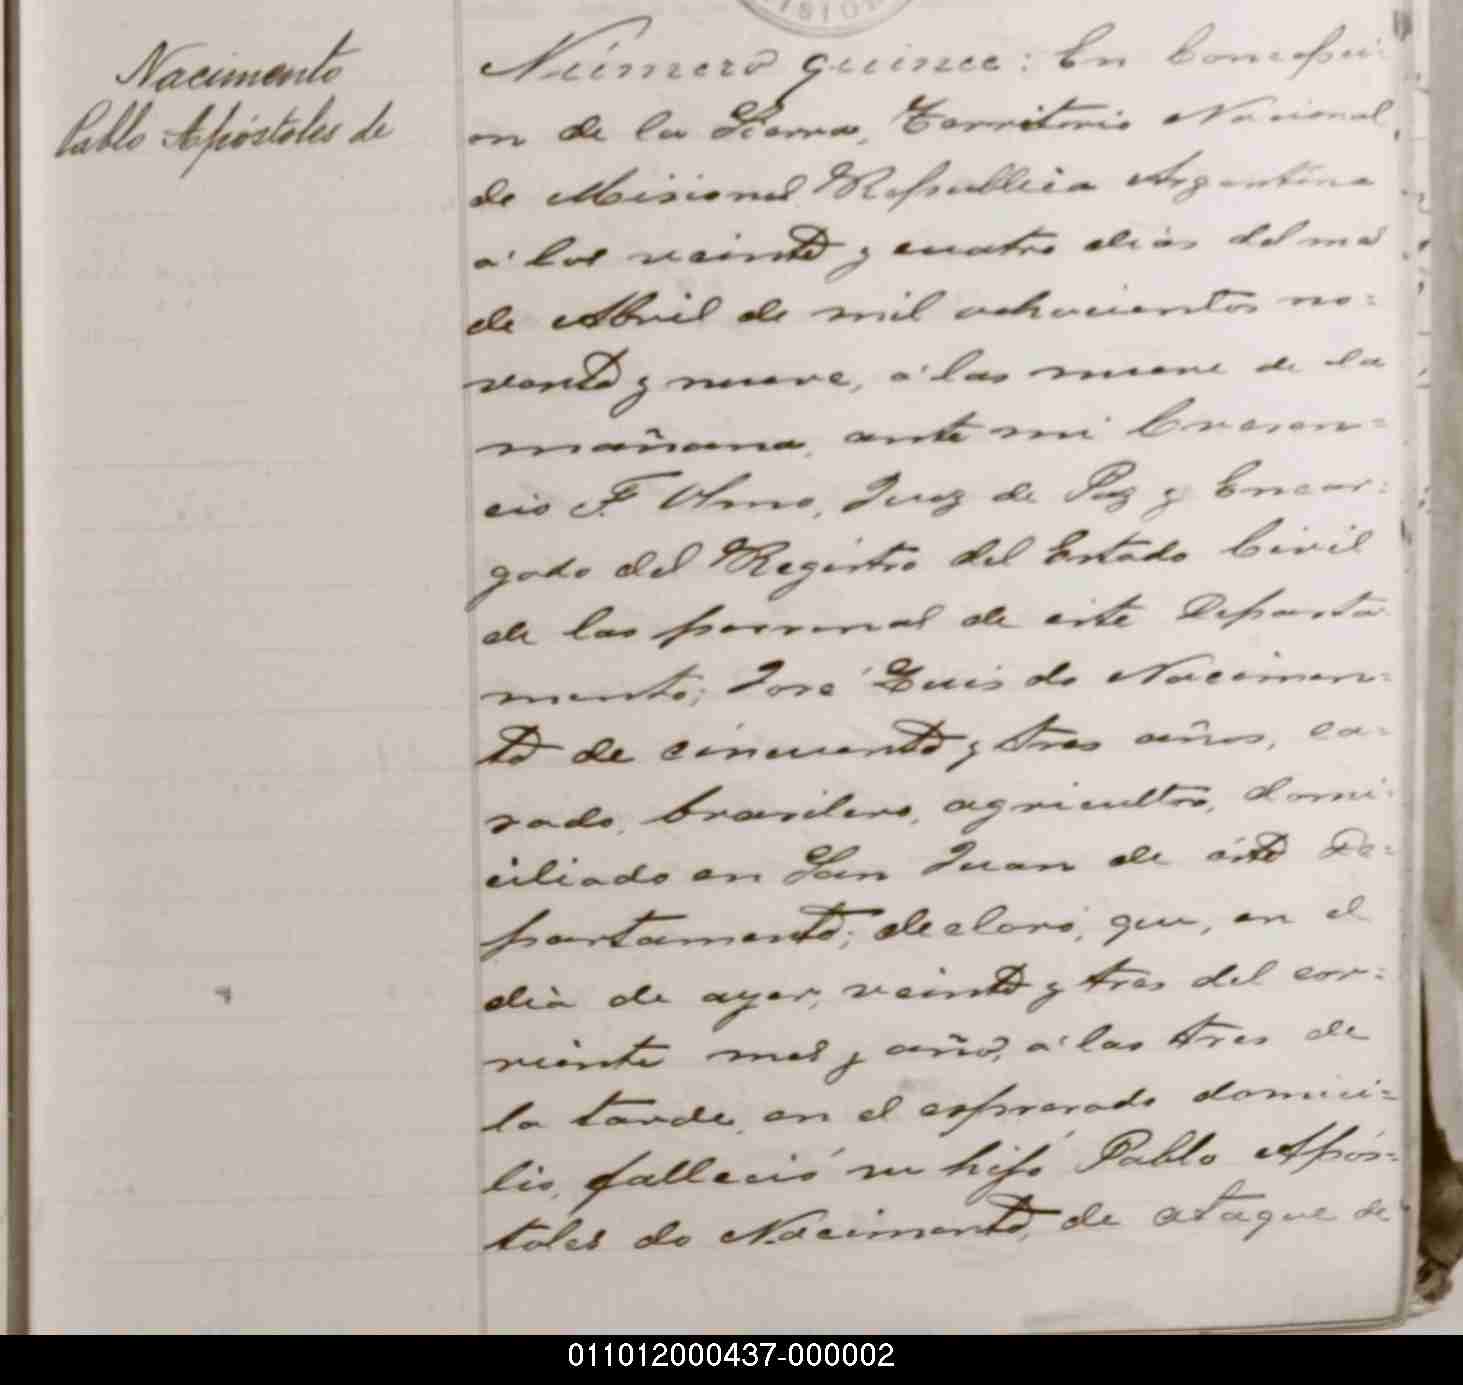 Nacimento
Pablo Apóstoles de
VISION
Número quince: En Concepci-
on de la Sierra, Territorio Nacional
de Misiones República Argentina
a' los veinte y cuatro dias del mes
de Abril de mil ochocientos no=
venta y nueve, a' las nueve de la
mañana, ante mi Cresen=
cio F. Olmo, Juez de Paz y Encar=
gado del Registro del Estado Civil
de las personas de este Departa
mento; José Luis do Nacimen=
to de cincuenta y tres años, ca=
sado, brasilero, agricultor, domi-
ciliado en San Juan de éste De=
partamento; declaró, que, en el
dia de ayer, veinte y tres del cor=
riente mes y año, a' las tres de
la tarde, en el espresado domici=
lio, falleció su hijo Pablo Após=
toles do Nacimento, de ataque de
011012000437-000002